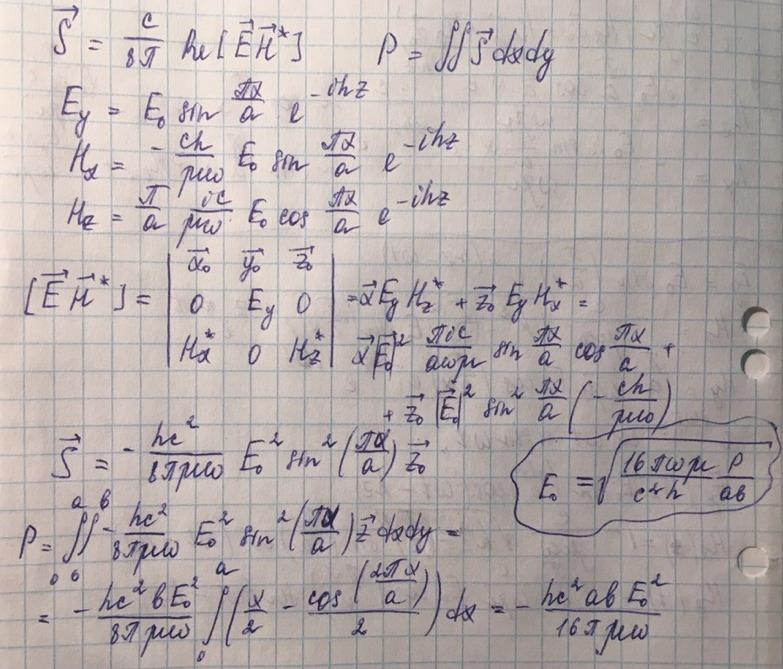 $\vec{S} = \frac{c}{8\pi} Re[\vec{E}\vec{H}^*]$ $P = \iint \vec{S} dxdy$
$E_y = E_0 \sin \frac{\pi x}{a} e^{-ihz}$
$H_x = -\frac{ch}{\mu\omega} E_0 \sin \frac{\pi x}{a} e^{-ihz}$
$H_z = \frac{\pi}{a} \frac{ic}{\mu\omega} E_0 \cos \frac{\pi x}{a} e^{-ihz}$
$[\vec{E}\vec{H}^*] = \begin{vmatrix} \vec{x}_0 & \vec{y}_0 & \vec{z}_0 \\ 0 & E_y & 0 \\ H_x^* & 0 & H_z^* \end{vmatrix} = \vec{x} E_y H_z^* + \vec{z}_0 E_y H_x^* =$
$\vec{x} |\vec{E}_0|^2 \frac{\pi ic}{a\omega\mu} \sin \frac{\pi x}{a} \cos \frac{\pi x}{a} +$
$+ \vec{z}_0 |\vec{E}_0|^2 \sin^2 \frac{\pi x}{a} \left(-\frac{ch}{\mu\omega}\right)$
$\vec{S} = -\frac{hc^2}{8\pi\mu\omega} E_0^2 \sin^2 \left(\frac{\pi x}{a}\right) \vec{z}_0$
$E_0 = \sqrt{\frac{16\pi\omega\mu}{c^2h} \frac{P}{ab}}$
$P = \int_0^a \int_0^b -\frac{hc^2}{8\pi\mu\omega} E_0^2 \sin^2 \left(\frac{\pi x}{a}\right) \vec{z} dxdy =$
$= -\frac{hc^2 b E_0^2}{8\pi\mu\omega} \int_0^a \left(\frac{x}{2} - \frac{\cos\left(\frac{2\pi x}{a}\right)}{2}\right) dx = -\frac{hc^2 ab E_0^2}{16\pi\mu\omega}$